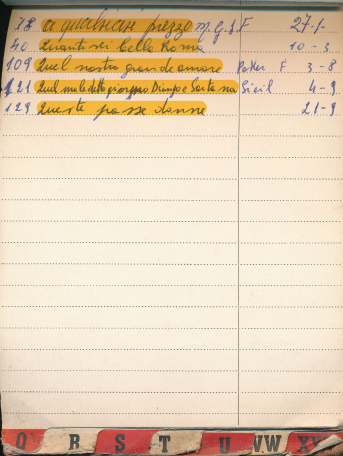 78 a qualsiasi prezzo M.G.M. F 27-1-
40 Quanto sei bella Roma 10-3
109 Quel nostro grande amore F 3-8
121 Quel maledetto giorno Django e Sartana 4-9
129 Queste pazze donne 21-9
Q R S T U VW XY